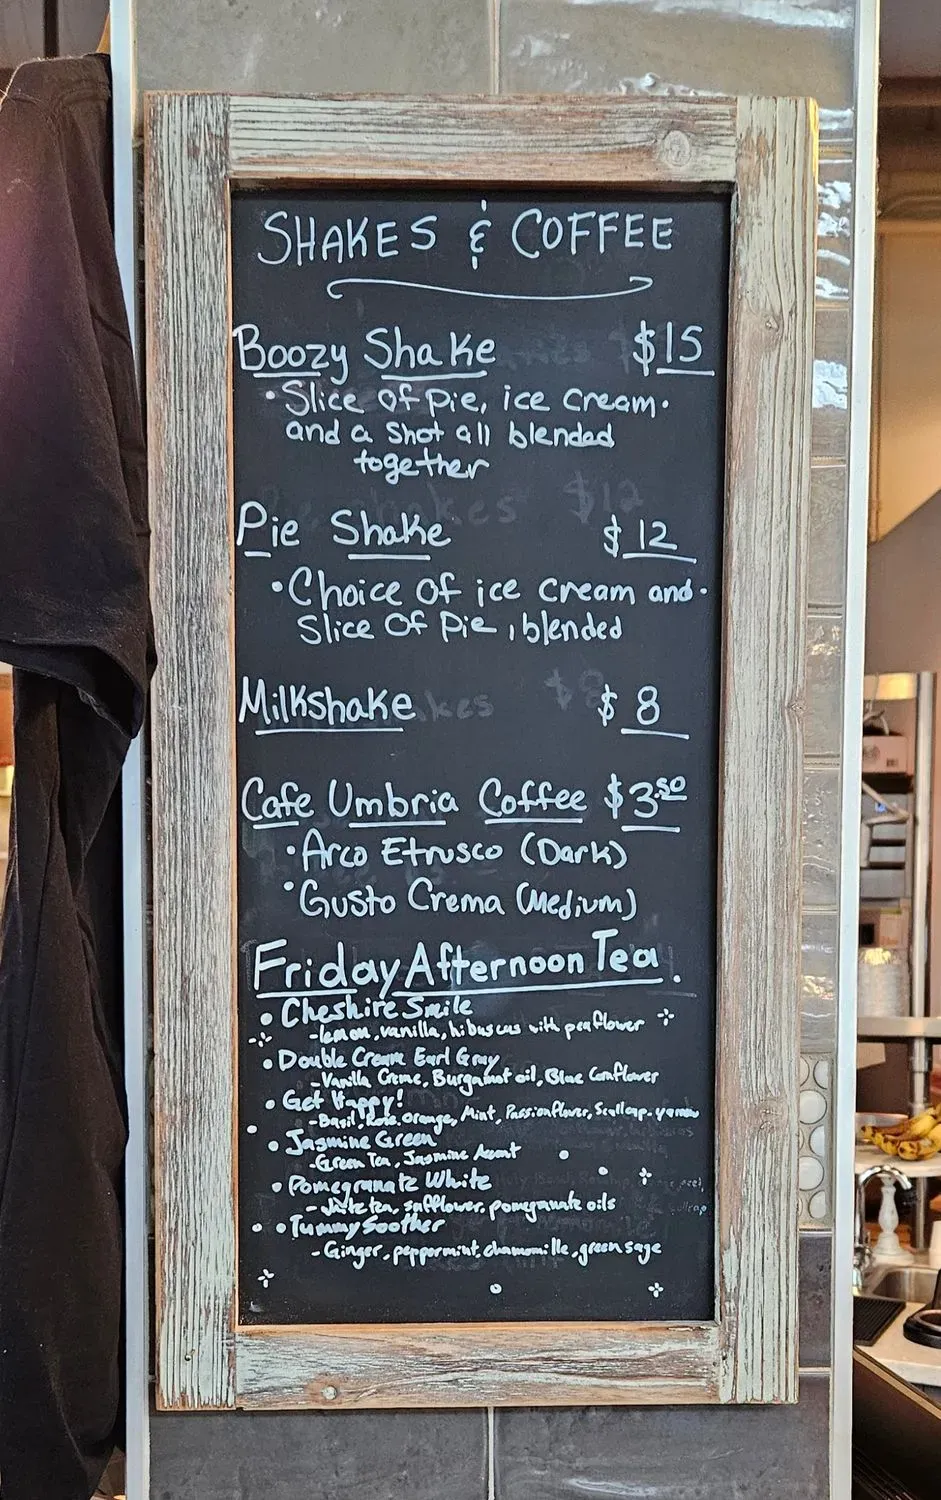 SHAKES & COFFEE
Boozy Shake $15
• Slice of Pie, ice cream•
and a Shot all blended
together
Pie Shake $12
• Choice of ice cream and•
Slice of Pie, blended
Milkshake $8
Cafe Umbria Coffee $3.50
• Arco Etrusco (Dark)
• Gusto Crema (Medium)
Friday Afternoon Tea.
• Cheshire Smile
- lemon, vanilla, hibuscus with peaflower
• Double Cream Earl Gray
- Vanilla Creme, Burgamot oil, Blue Cornflower
• Get Happy!
- Basil, Rose, Orange, Mint, Passionflower, Scullcap,
• Jasmine Green
- Green Tea, Jasmine Accent
• Pomegranate White
- White tea, safflower, pomegranate oils
• Tummy Soother
- Ginger, peppermint, chamomille, green sage